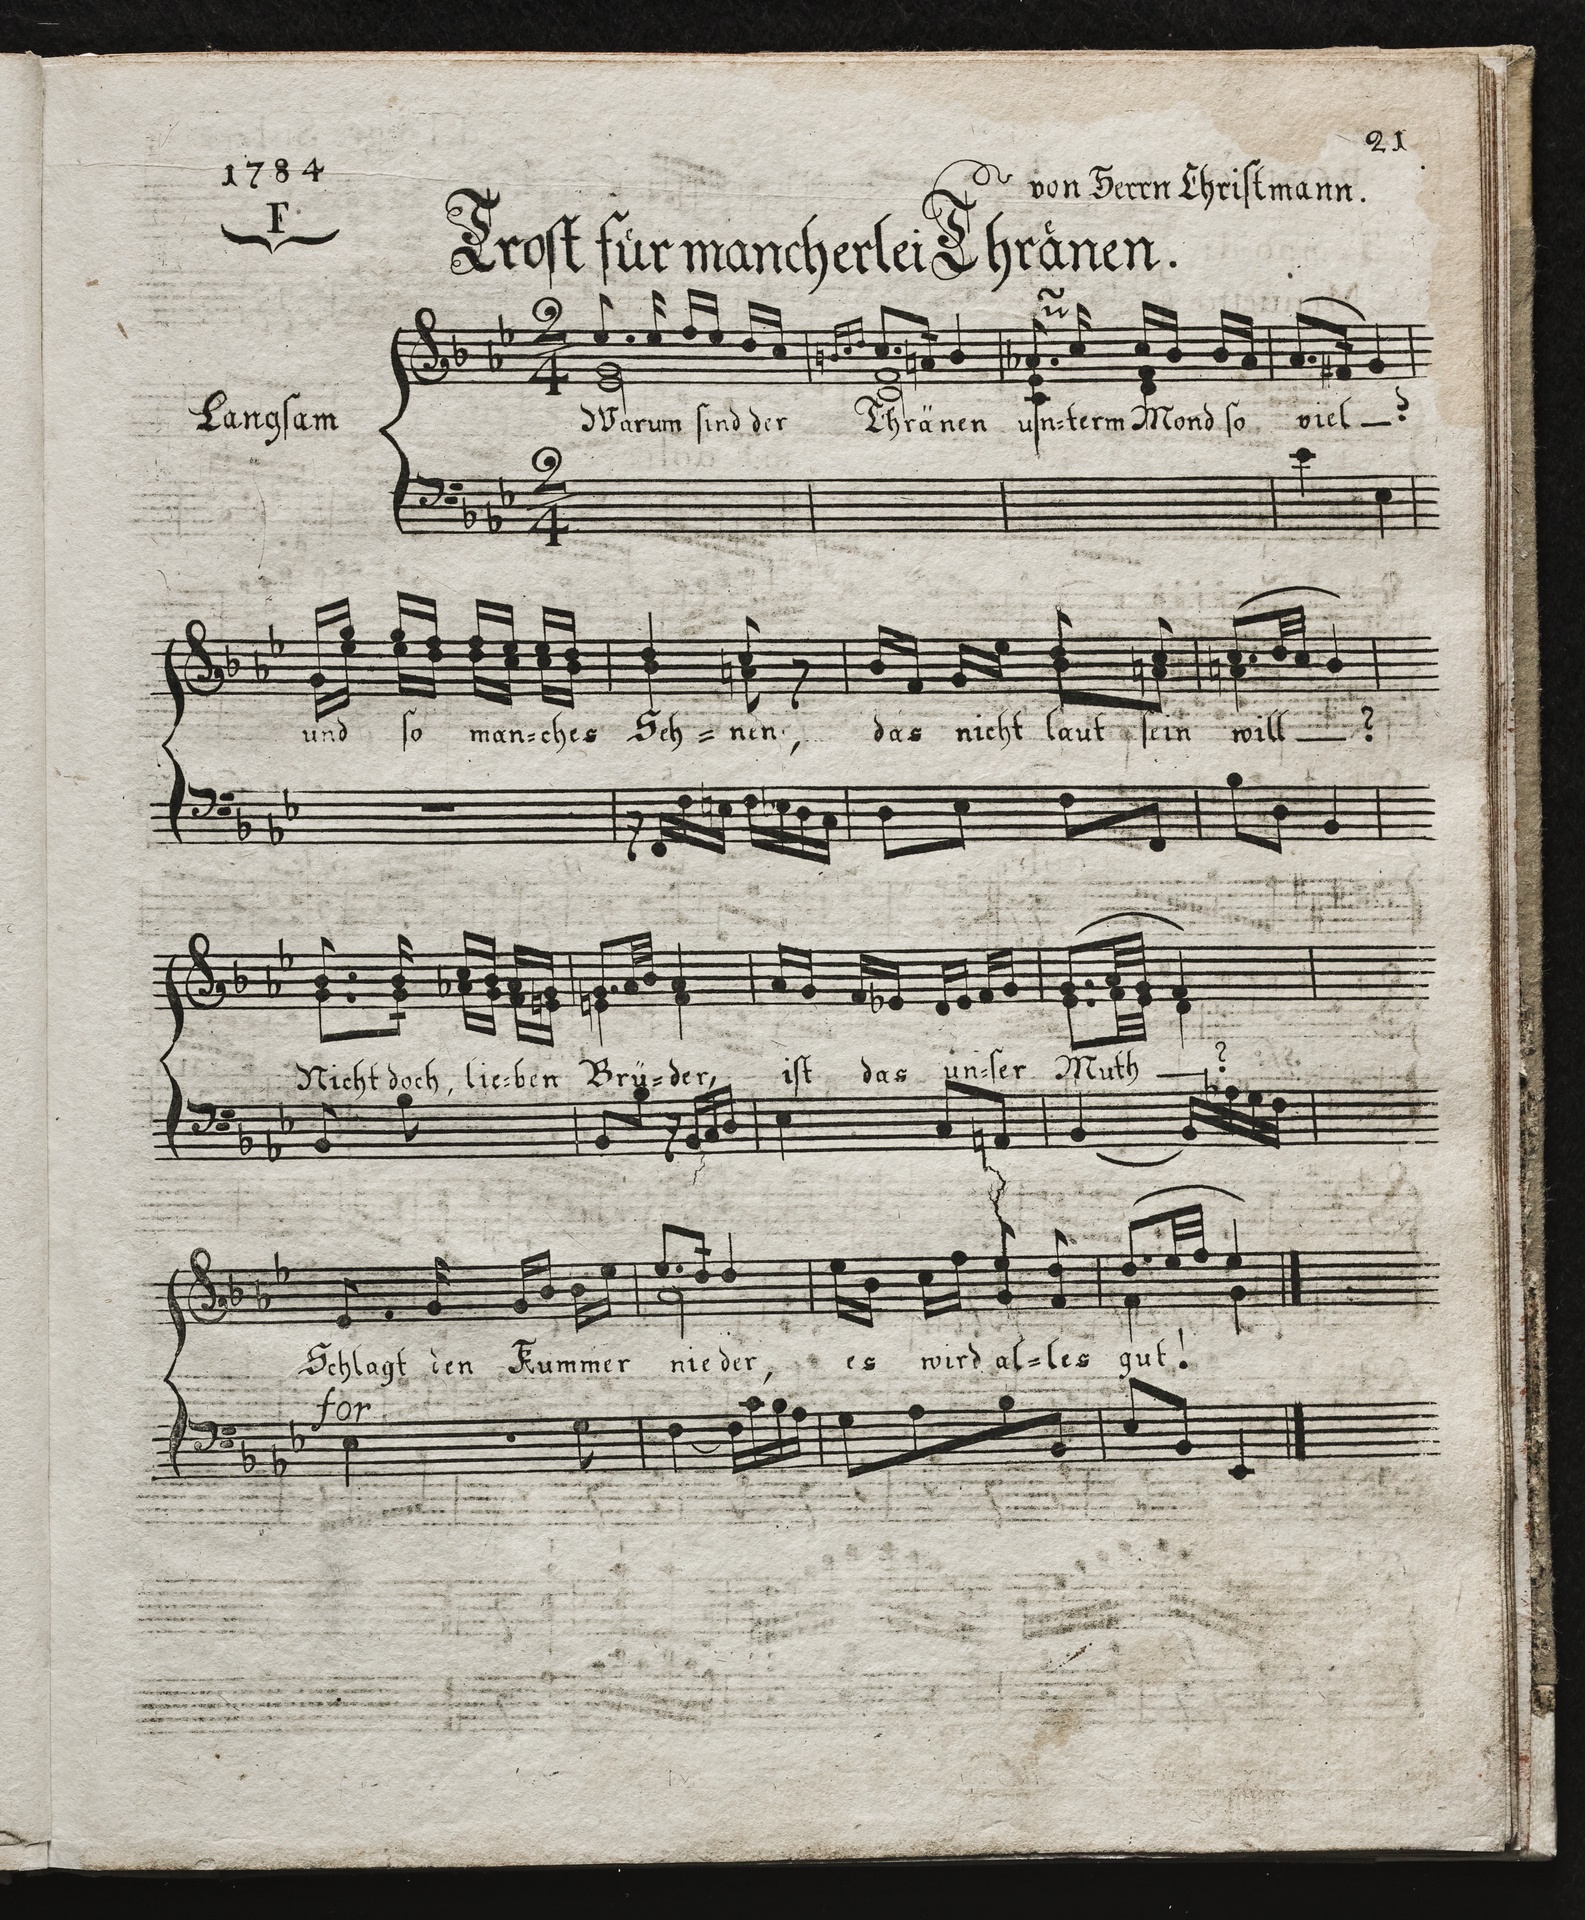 21
1784
von Herrn Chriſtmann.
F
Troſt für mancherlei Thränen.
2
4
Langſam
Warum ſind der Thränen un=term Mond ſo viel —?
2
4
und ſo man=ches Seh=nen, das nicht laut ſein will —?
Nicht doch, lie=ben Brü=der, iſt das un=ſer Muth —?
Schlagt den Kummer nieder, es wird al=les gut!
for